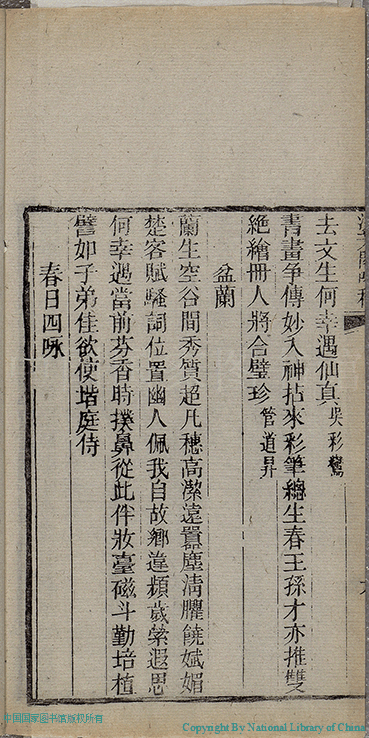 去文生何幸遇仙真 吳彩鸞
青畫爭傳妙入神拈來彩筆總生春王孫才亦推雙
絶繪冊人將合璧珍 管道昇
盆蘭
蘭生空谷間秀質超凡穗高潔遠囂塵清臞饒娬媚
楚客賦騷詞位置幽人佩我自故鄉違頻歲縈遐思
何幸遇當前芬香時撲鼻從此伴妝臺磁斗勤培植
譬如子弟佳欲使堦庭侍
春日四咏
中国国家图书馆版权所有
Copyright By National Library of China